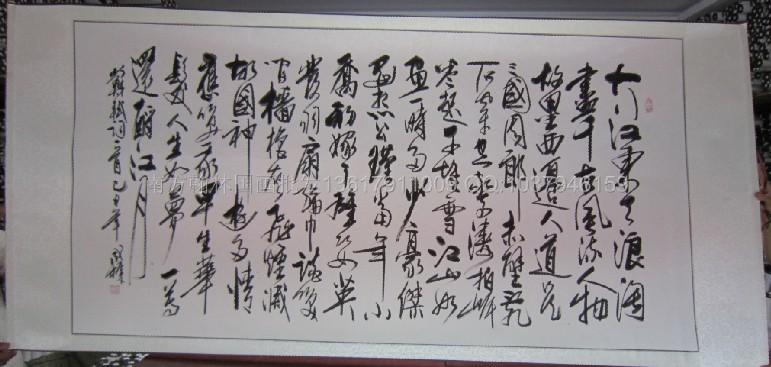 大江東去浪淘
盡千古風流人物
故壘西邊人道是
三國周郎赤壁乱
石驚濤拍岸
卷起千堆雪江山如
画一時多少豪傑
遥想公瑾當年小
喬初嫁了雄姿英
發羽扇綸巾談笑
间檣櫓灰飛煙滅
故國神遊多情
應笑我早生華
髮人生如夢一尊
還酹江月
蘇軾詞一首己丑年
南方翰林国画批发